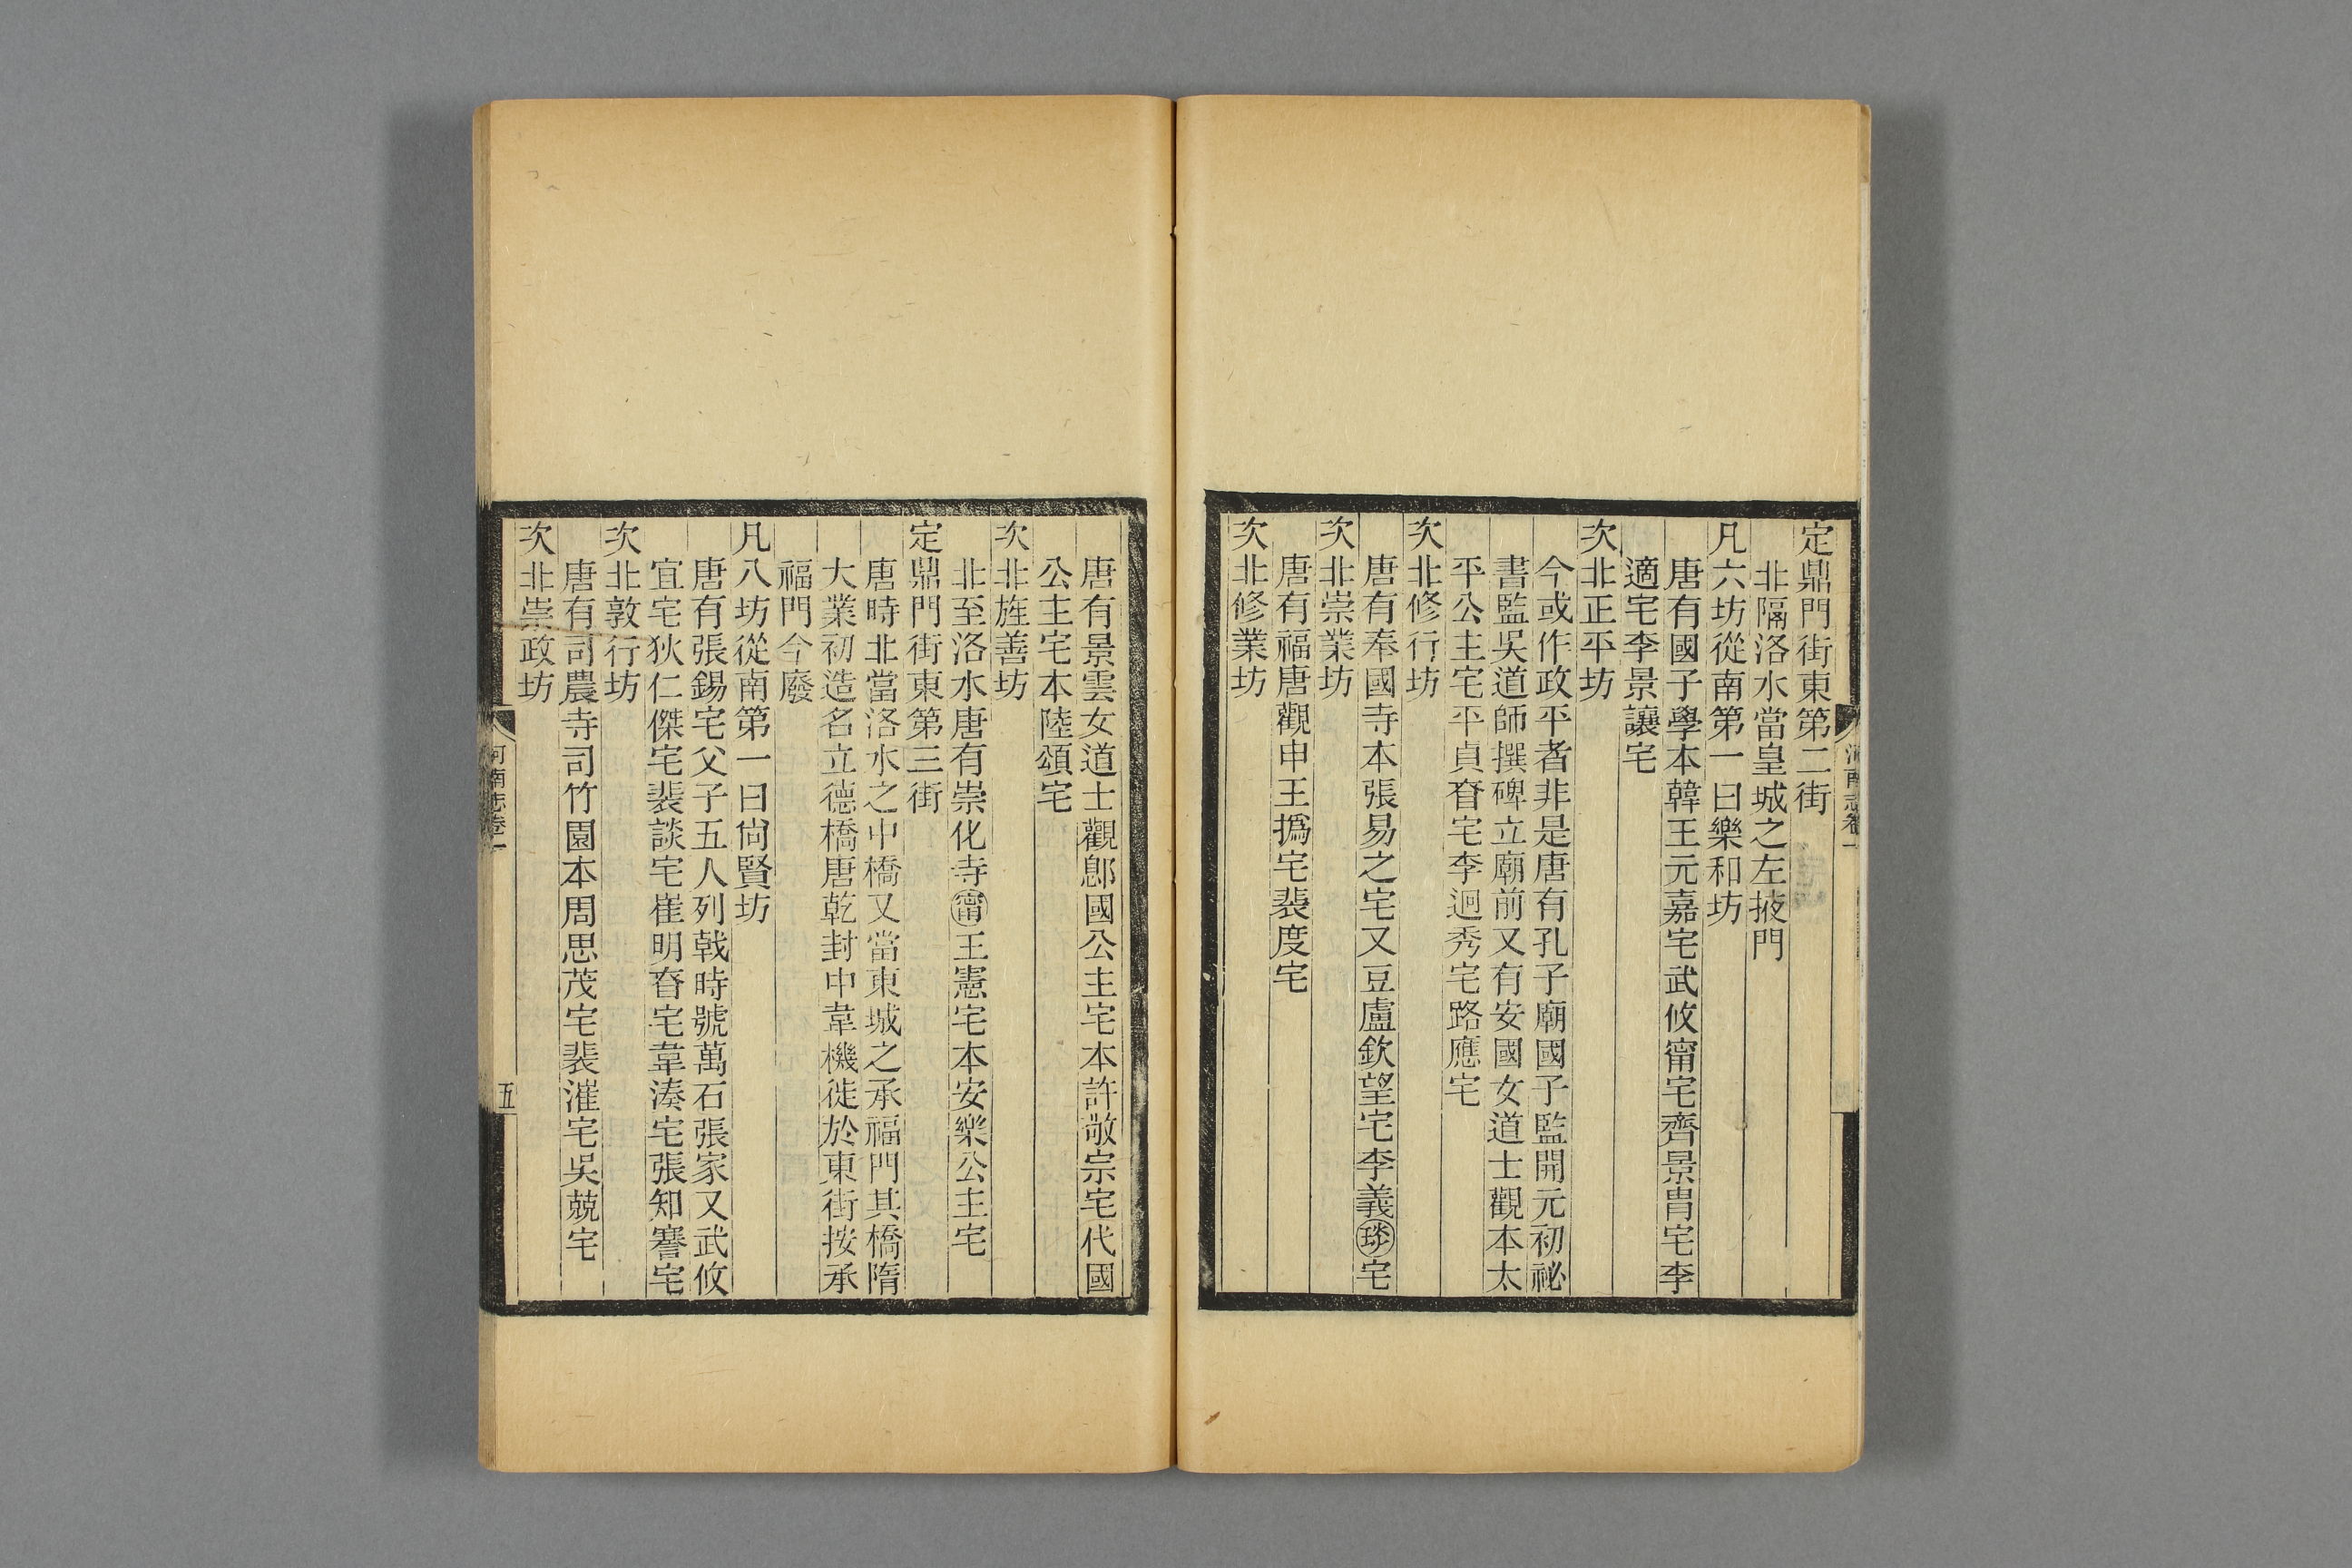 定鼎門街東第二街
北隔洛水當皇城之左掖門
凡六坊從南第一曰樂和坊
唐有國子學本韓王元嘉宅武攸甯宅齊景胄宅李
適宅李景讓宅
次北正平坊
今或作政平者非是唐有孔子廟國子監開元初祕
書監吳道師撰碑立廟前又有安國女道士觀本太
平公主宅平貞眘宅李迥秀宅路應宅
次北修行坊
唐有奉國寺本張易之宅又豆盧欽望宅李義琰宅
次北崇業坊
唐有福唐觀申王撝宅裴度宅
次北修業坊
唐有景雲女道士觀郞國公主宅本許敬宗宅代國
公主宅本陸頌宅
次北旌善坊
北至洛水唐有崇化寺甯王憲宅本安樂公主宅
定鼎門街東第三街
唐時北當洛水之中橋又當東城之承福門其橋隋
大業初造名立德橋唐乾封中韋機徙於東街按承
福門今廢
凡八坊從南第一曰尙賢坊
唐有張錫宅父子五人列戟時號萬石張家又武攸
宜宅狄仁傑宅裴談宅崔明眘宅韋湊宅張知謇宅
次北敦行坊
唐有司農寺司竹園本周思茂宅裴漼宅吳兢宅
次北崇政坊
河南志卷一
五